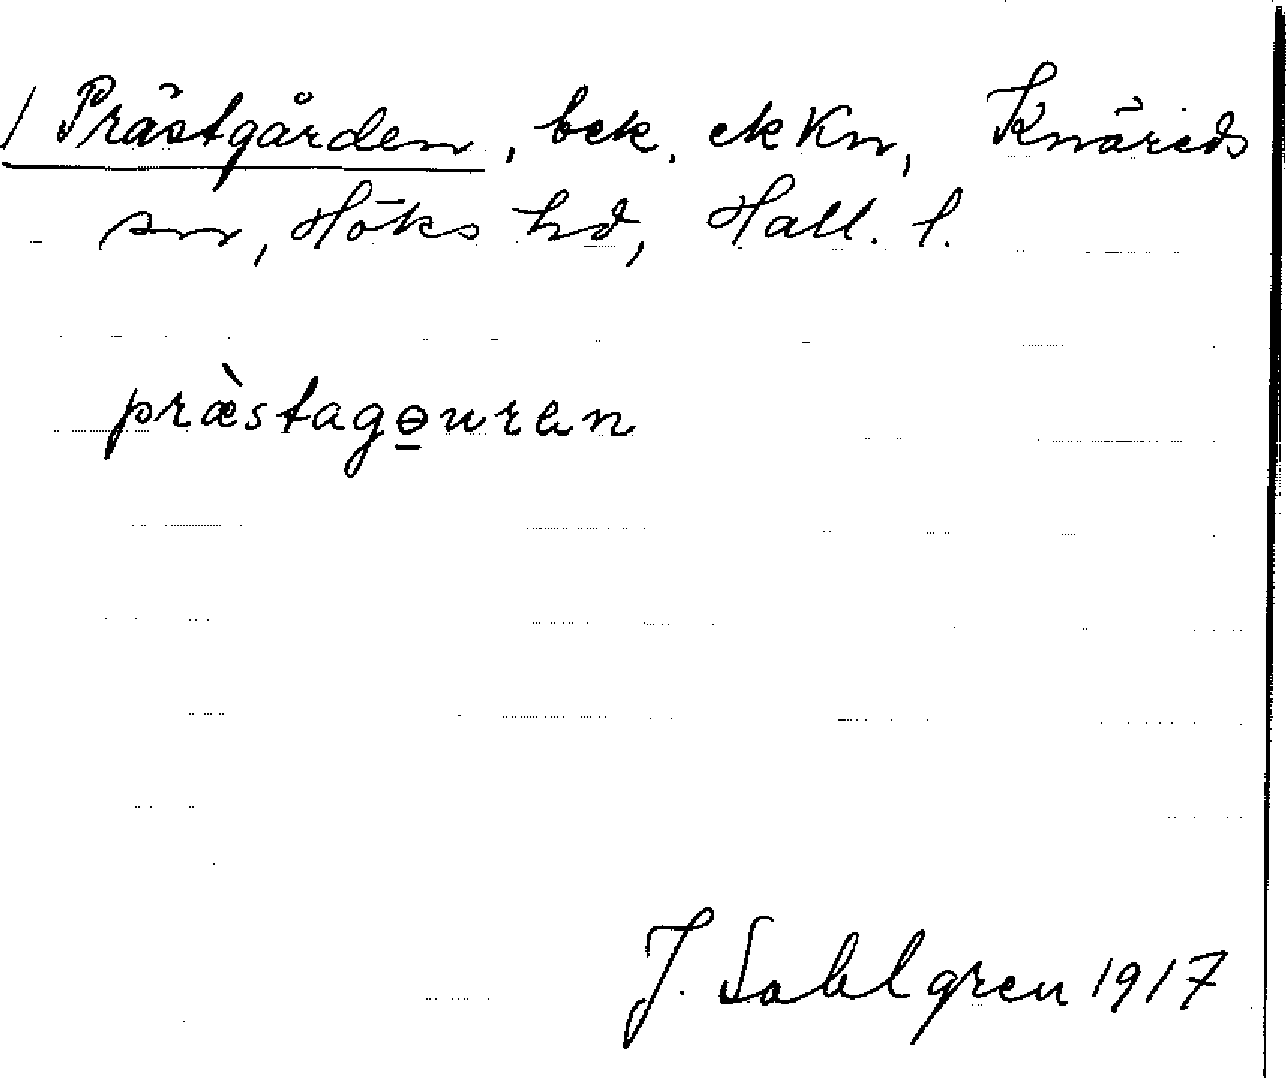 / Prästgården, bek. ekKn, Knäreds
sn, Höks hd, Hall. l.
præ̀stagɵ̠uren
J. Sahlgren 1917